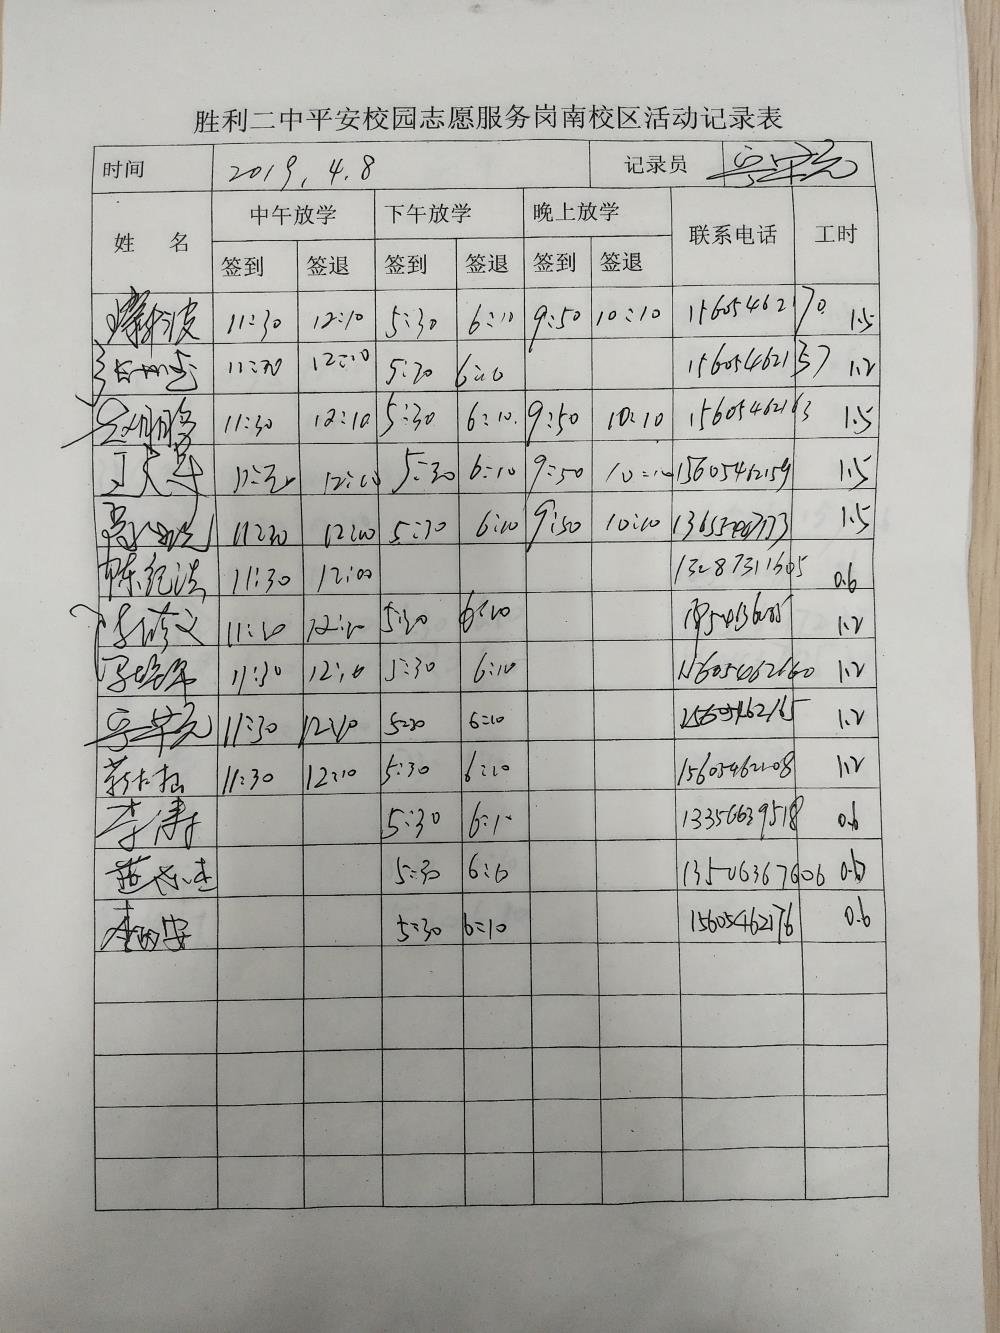 胜利二中平安校园志愿服务岗南校区活动记录表
时间 2019.4.8 记录员
姓 名 中午放学 下午放学 晚上放学 联系电话 工时
签到 签退 签到 签退 签到 签退
11:30 12:10 5:30 6:10 9:50 10:10 15605462170 1.5
11:30 12:10 5:30 6:10 15605462137 1.2
11:30 12:10 5:30 6:10 9:50 10:10 15605462163 1.5
12:10 5:30 6:10 9:50 10:10 15605462159 1.5
11:30 12:10 5:30 6:10 9:50 10:10 1.5
陈纪洪 11:30 12:00 13287311605 0.6
12:10 5:30 6:10 1.2
11:30 12:10 5:30 6:10 15605462660 1.2
11:30 12:10 5:30 6:10 15605462165 1.2
11:30 12:10 5:30 6:10 15605462108 1.2
李涛 5:30 6:10 13356639518 0.6
5:30 6:10 13506367606 0.6
5:30 6:10 15605462176 0.6